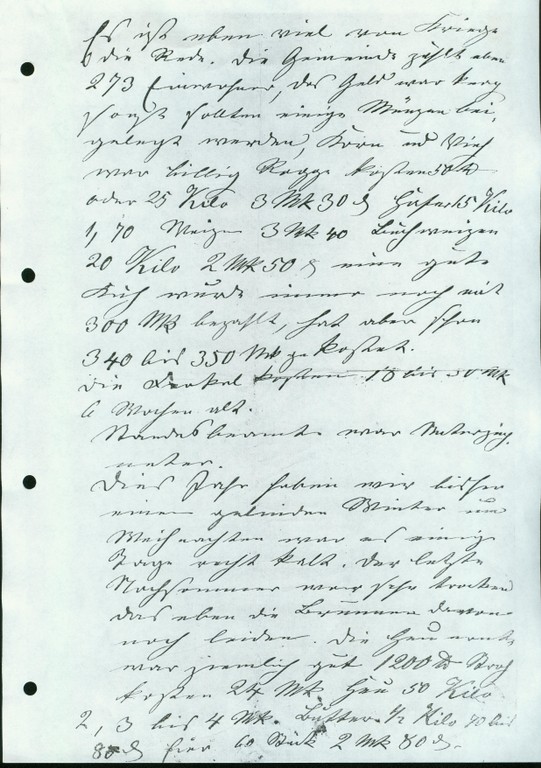 Es ist eben viel von Kriege
die Rede. Die Gemeinde zählt eben
273 Einwohner, das Geld war knap
sonst sollten einige Münzen bei,
gelegt werden, Korn und Vieh
war billig Rogge kosten 50 ℔
oder 25 Kilo 3 Mk 30 ₰ Hafer 15 Kilo
1,70 Weizen 3 Mk 40 Buchweizen
20 Kilo 2 Mk 50 ₰ eine gute
Kuh wurde immer noch mit
300 Mk bezahlt, hat aber schon
340 bis 350 Mk gekostet.
Die Ferkel kosten 18 bis 30 Mk
6 Wochen alt.
Standesbeamte war Unterzeich,
neter.
Dies Jahr haben wir bisher
einen gelinden Winter um
Weihnachten war es einige
Tage recht kalt. Der letzte
Nachsommer war sehr trocken
das eben die Brunnen davon
noch leiden. Die Heu
war ziemlich gut 1200 ℔ Stroh
kosten 24 Mk. Heu 50 Kilo
2, 3 bis 4 Mk. Butter ½ Kilo 70 bis
80 ₰ Eier 60 Stück 2 Mk 80 ₰.